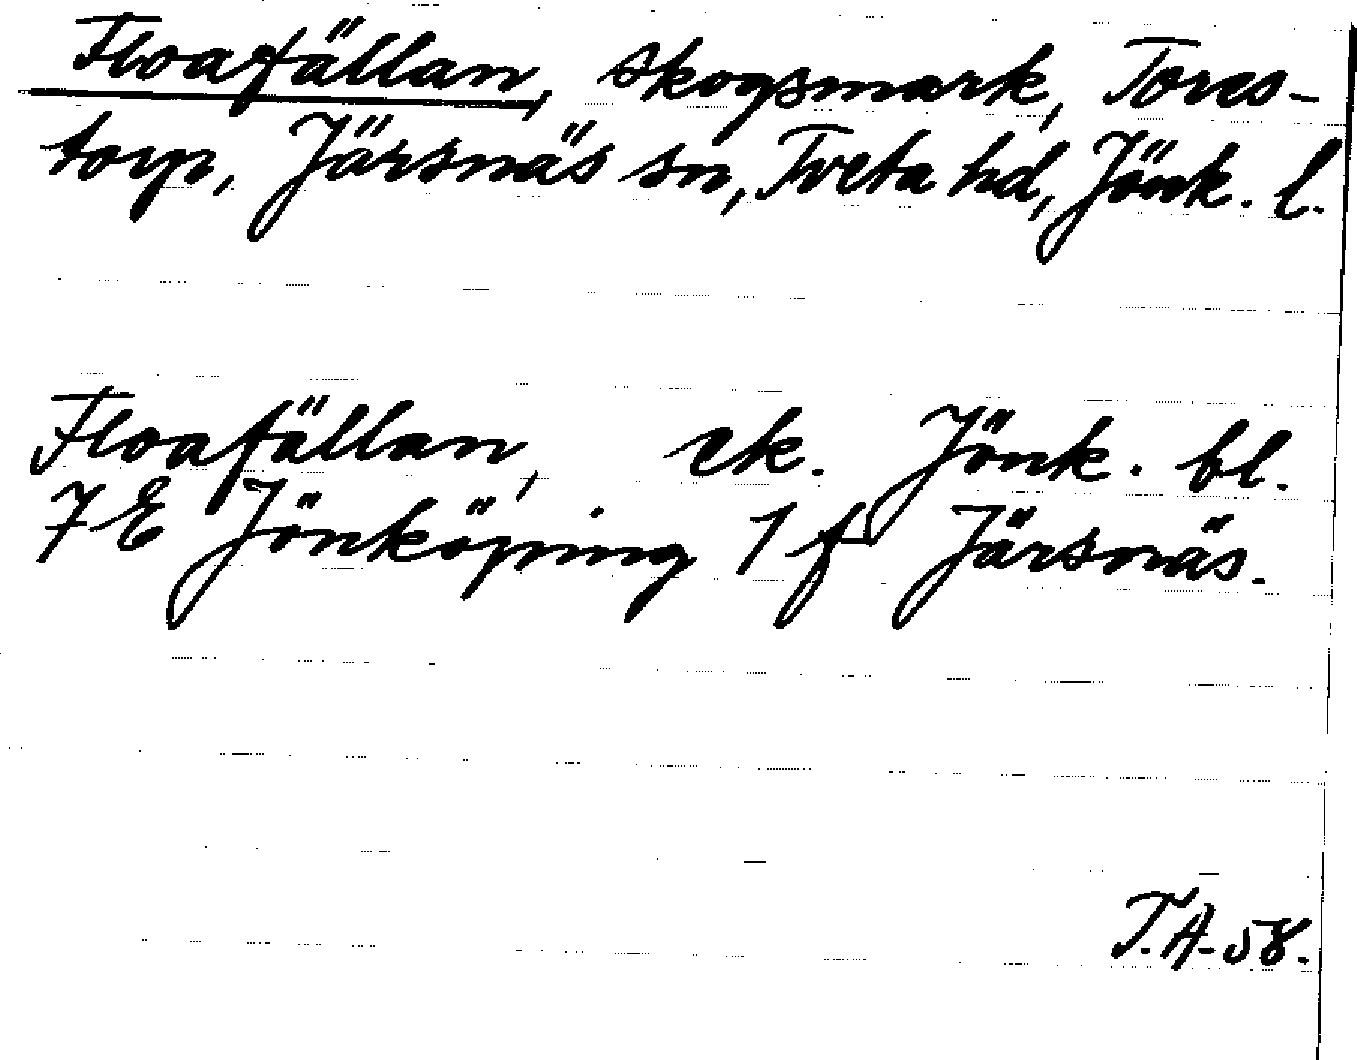 Floafällan, skogsmark, Tores-
torp, Järsnäs sn, Tveta hd, Jönk. l.
Floafällan, ek. Jönk. bl.
7 E Jönköping 1 f Järsnäs.
T.A. 58.